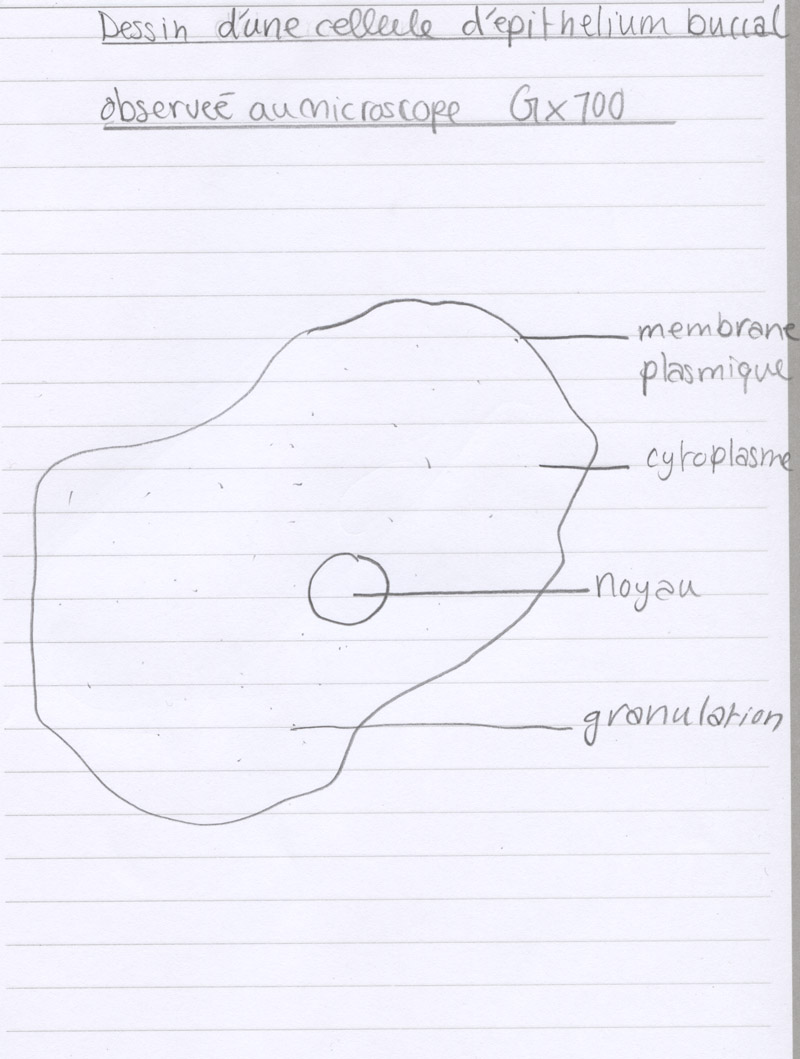 Dessin d'une cellule d'épithelium buccal
observeé au microscope Gx100
membrane
plasmique
cytoplasme
noyau
granulation